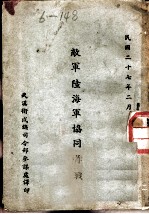 民國二十七年二月
6-148
敵軍陸海軍協同作戰
武漢衛戍總司令部參謀處譯印